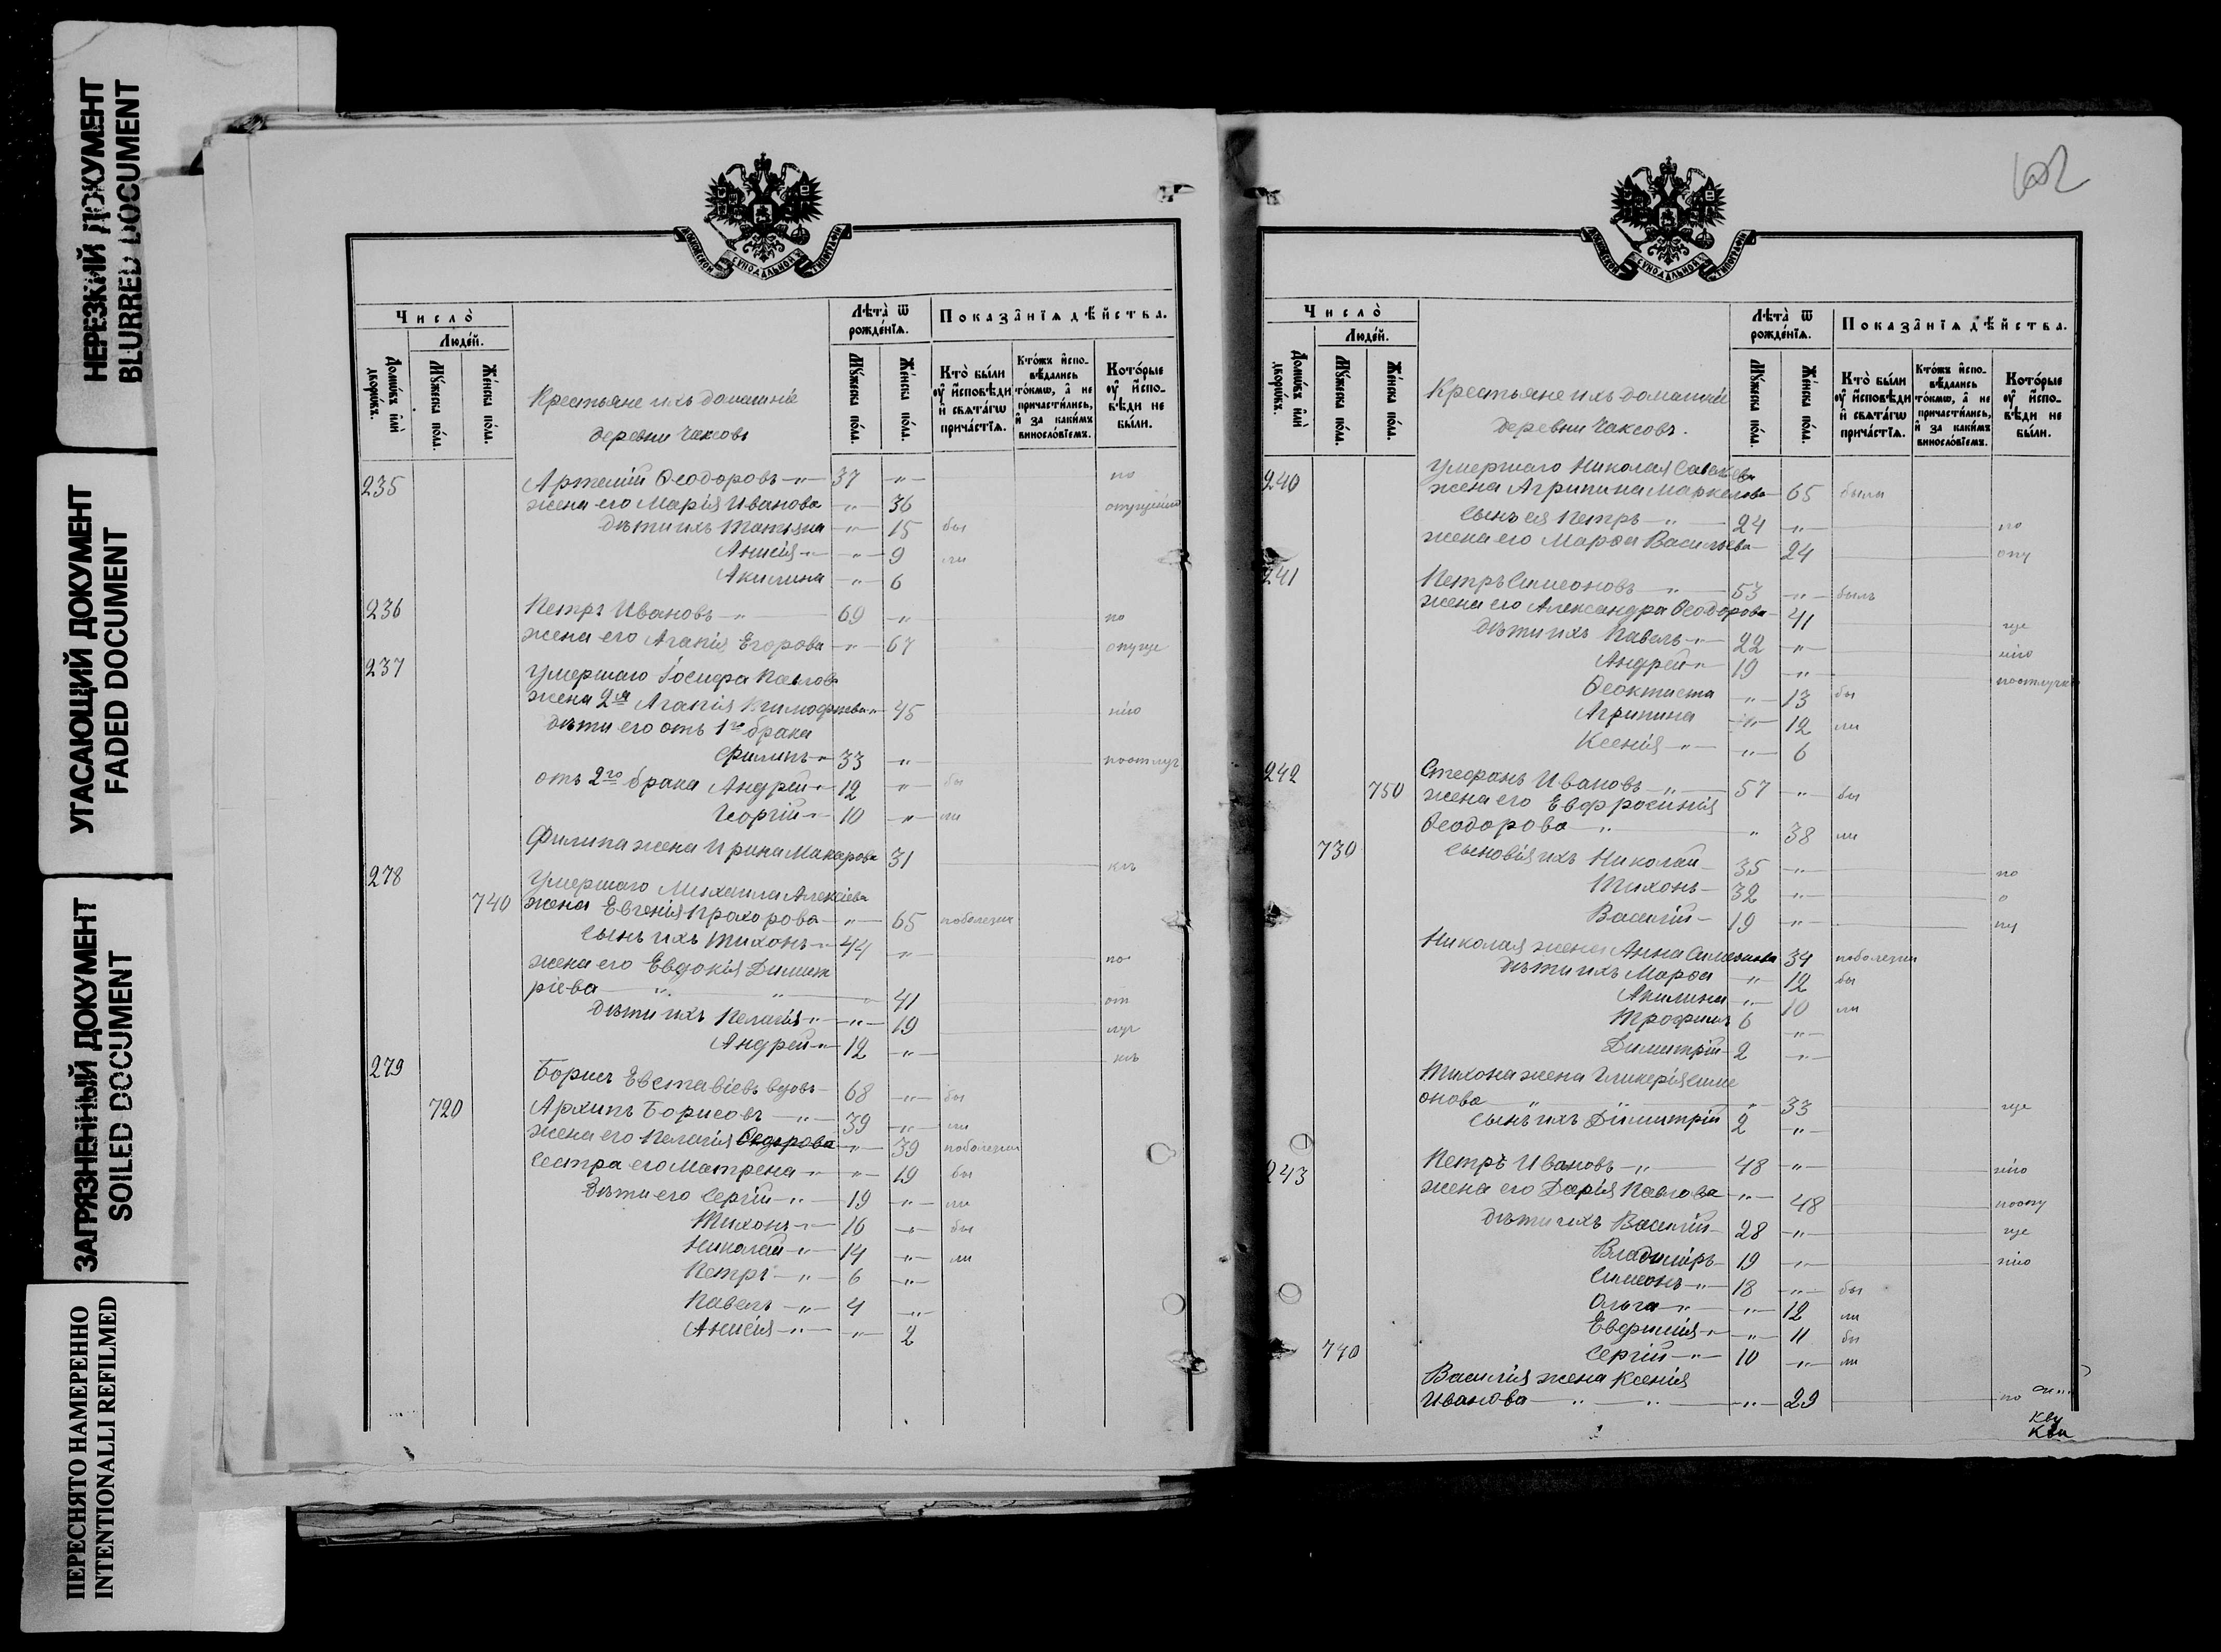 НЕРЕЗКИЙ ДОКУМЕНТ
BLURRED DOCUMENT
УГАСАЮЩИЙ ДОКУМЕНТ
FADED DOCUMENT
ЗАГРЯЗНЕННЫЙ ДОКУМЕНТ
SOILED DOCUMENT
ПЕРЕСНЯТО НАМЕРЕННО
INTENTIONALLI REFILMED
Число̀
Люде́й.
Домѡ́въ и҆лѝ дворѡ́въ.
Мꙋ́жеска по́ла.
Же́нска по́ла.
Крестьяне ихъ домашніе
деревни Чаксовъ
Лѣта̀ ѿ рожде́нїѧ.
Мꙋ́жеска по́ла.
Же́нска по́ла.
Показа̂нїѧ дѣ́йства.
Кто̀ бы́ли ᲂу҆ и҆сповѣ́ди и҆ свѧта́гѡ прича́стїѧ.
Кто́жъ и҆сповѣ́дались то́кмѡ, а҆ не причасти́лись, и҆ за каки́мъ винослові́емъ.
Кото́рые ᲂу҆ и҆сповѣ́ди не бы́ли.
235 Артемій Ѳеодоровъ 37 " по
жена его Марія Иванова " 36 опущенію
дѣти ихъ Татьяна " 15 бы
Анисія " 9 ли
Акилина " 6
236 Петръ Ивановъ 69 " по
жена его Агапія Егорова " 67 опуще
237 Умершаго Іосифа Павлова
жена 2я Агапія Тимофѣева 45 нію
дѣти его отъ 1го брака
Филипъ 33 " по отлуч
отъ 2го брака Андрей 12 " бы
Георгій 10 " ли
Филипа жена Ирина Макарова 31 къ
278 Умершаго Михаила Алексіева
740 жена Евгенія Прохорова " 65 по болезни
сынъ ихъ Тихонъ 44 " по
жена его Евдокія Димит
ріева " " 41 от
дѣти ихъ Пелагія " 19 луч
Андрей 12 " къ
279 Борисъ Евставіевъ вдовъ 68 " бы
720 Архипъ Борисовъ " 39 " ли
жена его Пелагія " 39 по болезни
Сестра его Матрена " 19 бы
дѣти его Сергій " 19 " ли
Тихонъ 16 " бы
Николай 14 " ли
Петръ " 6 "
Павелъ " 4 "
Анисія " " 2
Число̀
Люде́й.
Домѡ́въ и҆лѝ дворѡ́въ.
Мꙋ́жеска по́ла.
Же́нска по́ла.
Крестьяне ихъ домашніе
деревни Чаксовъ.
Лѣта̀ ѿ рожде́нїѧ.
Мꙋ́жеска по́ла.
Же́нска по́ла.
Показа̂нїѧ дѣ́йства.
Кто̀ бы́ли ᲂу҆ и҆сповѣ́ди и҆ свѧта́гѡ прича́стїѧ.
Кто́жъ и҆сповѣ́дались то́кмѡ, а҆ не причасти́лись, и҆ за каки́мъ винослові́емъ.
Кото́рые ᲂу҆ и҆сповѣ́ди не бы́ли.
240 Умершаго Николая
жена Агрипина Маркелова 65 была
сынъ ея Петръ " 24 " по
жена его Марѳа Васильева 24 опу
241 Петръ Симеоновъ " 53 " былъ
жена его Александра Ѳеодорова 41 ще
дѣти ихъ Павелъ 22 " нію
Андрей 19 " по отлучк
Ѳеоктиста " 13 бы
Агрипина " 12 ли
Ксенія " 6
242 750 Стефанъ Ивановъ " 57 " бы
жена его Евфросинія
Ѳеодорова " " 38 ли
730 сыновія ихъ Николай 35 " по
Тихонъ 32 " о
Василій 19 " пу
Николая жена Анна Симеонова 34 по болезни
дѣти ихъ Марѳа " 12 бы
Акилина " 10 ли
Трофимъ 6 "
Димитрій 2 "
Тихона жена Гликерія Симе
онова " " 33 ще
сынъ ихъ Димитрій 2 "
243 Петръ Ивановъ " 48 " нію
жена его Дарія Павлова " 48 по опу
дѣти ихъ Василій 28 " ще
Владиміръ 19 " нію
Симеонъ 18 " бы
Ольга " " 12 ли
Евфимія " 11 бы
740 Сергій " 10 " ли
Василія жена Ксенія
Иванова " " " 29 по